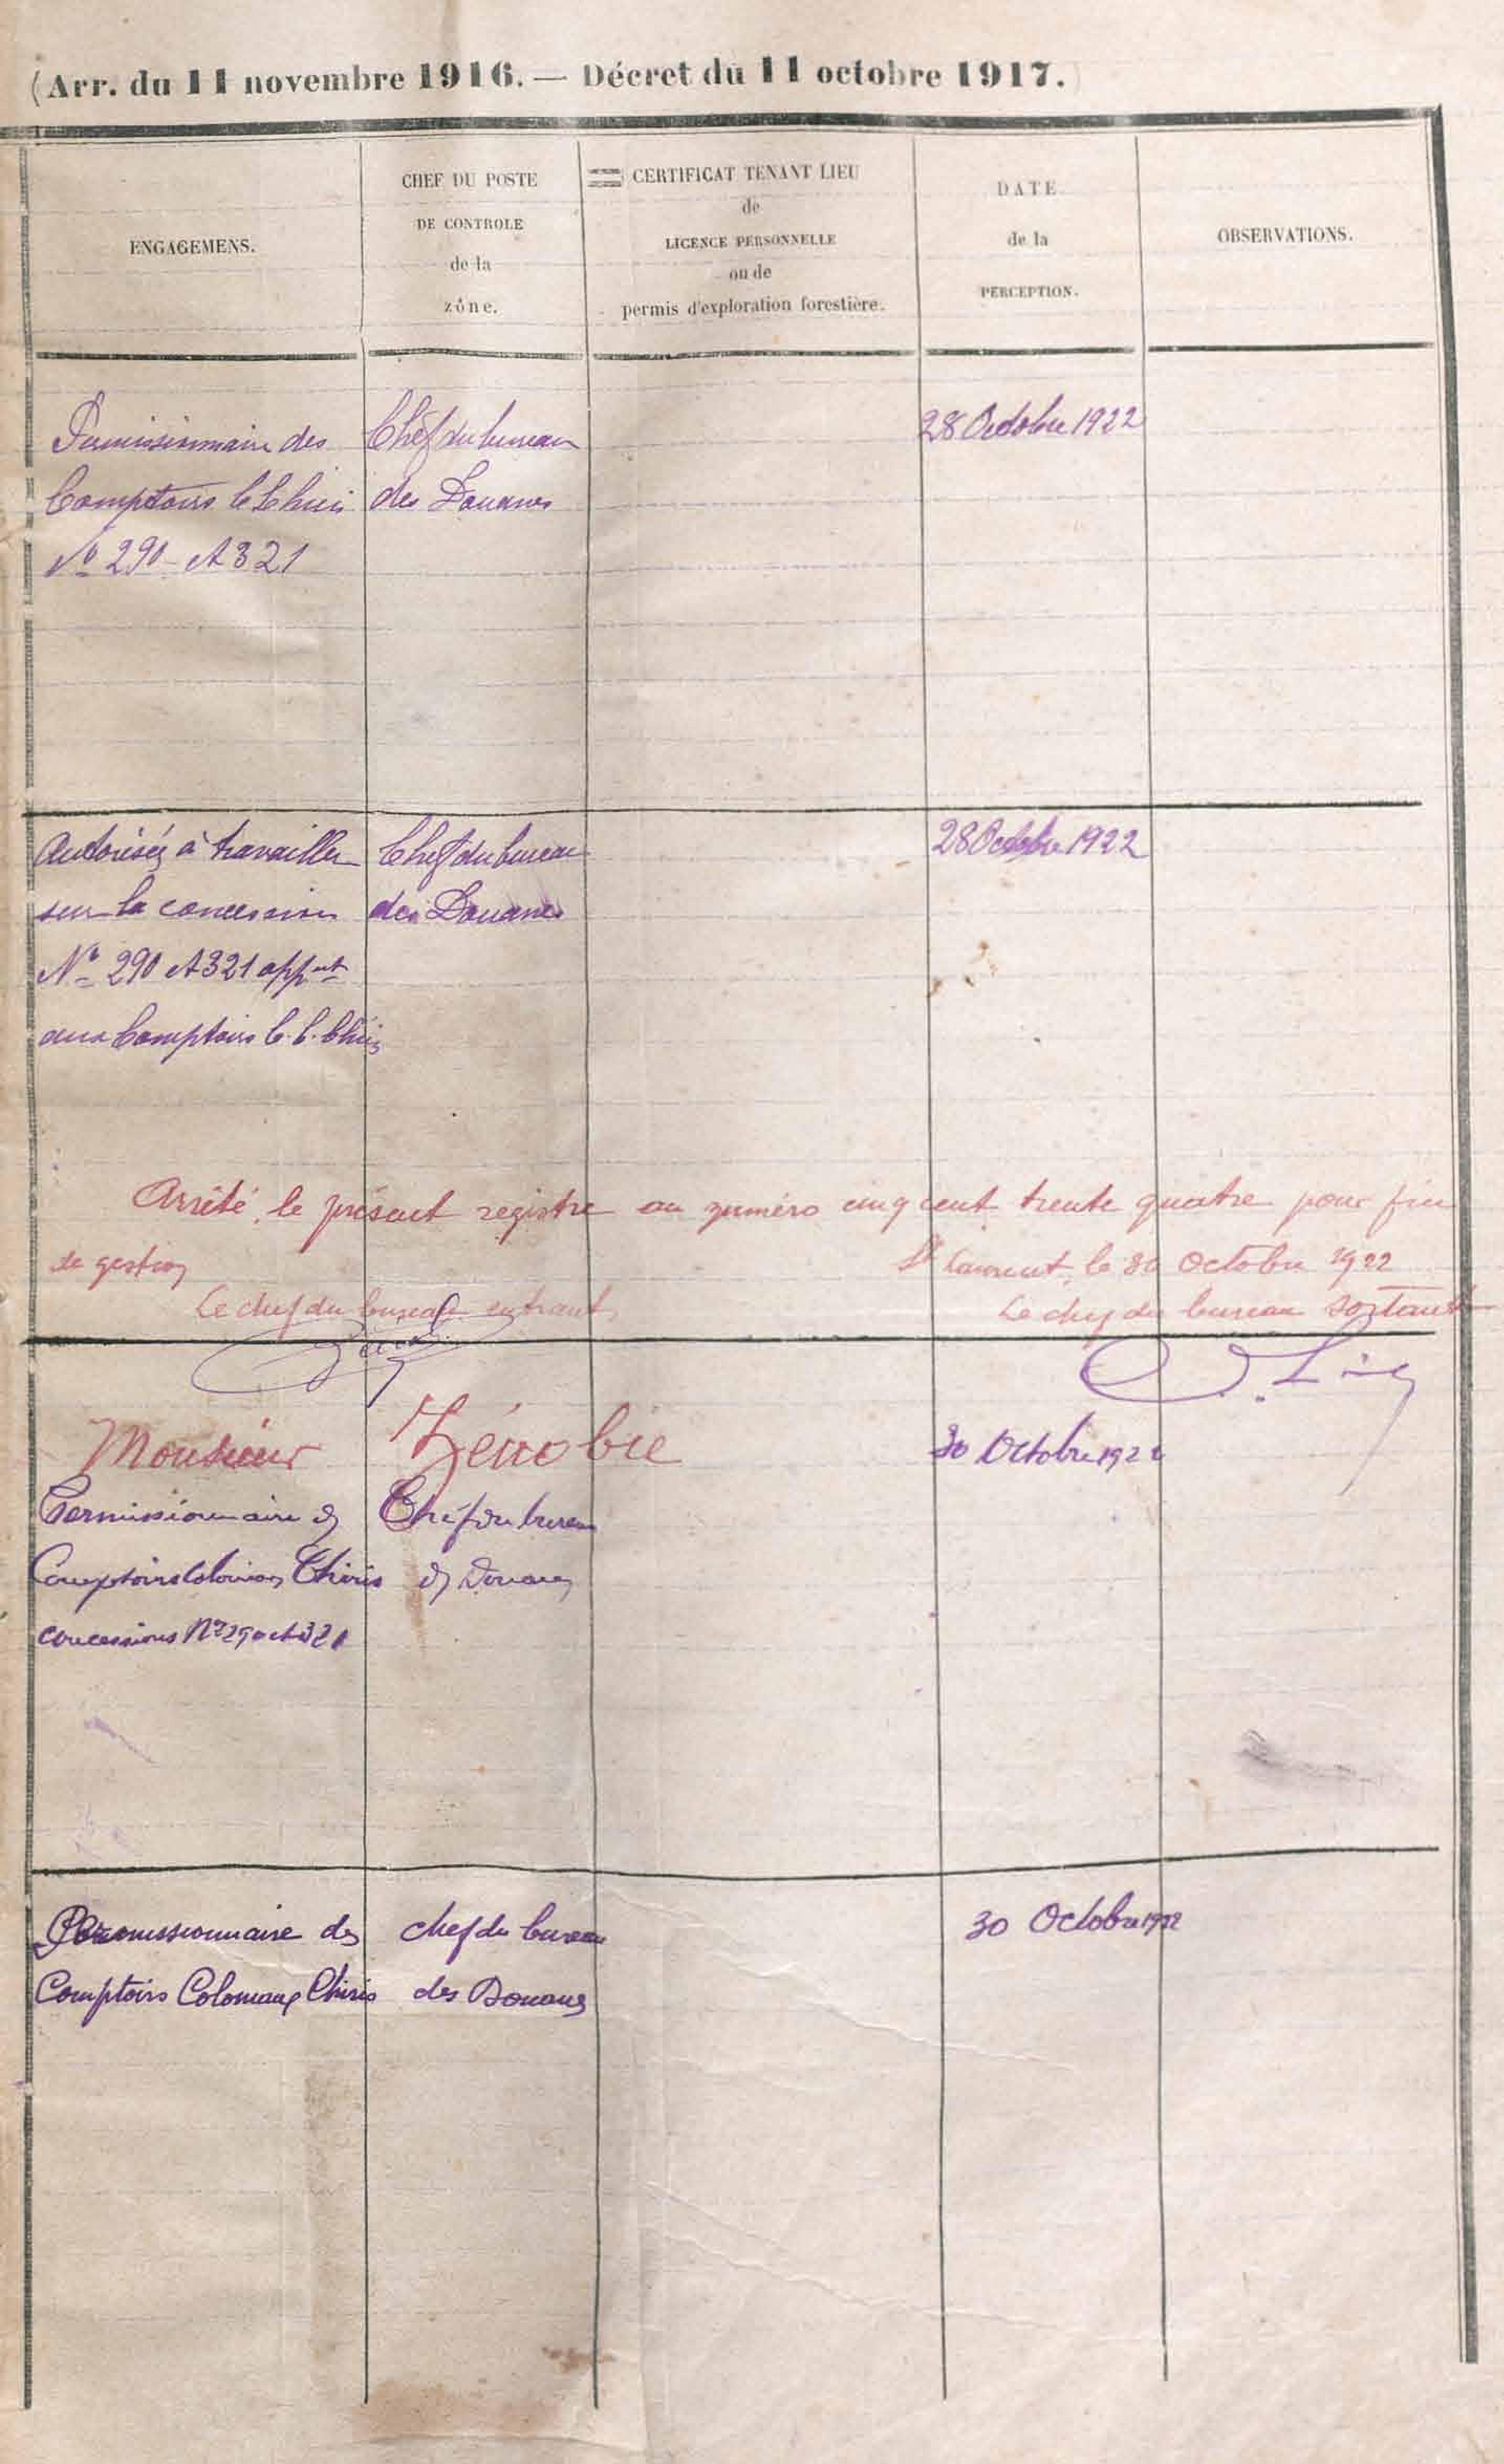 (Arr. du 11 novembre 1916. — Décret du 11 octobre 1917.)
ENGAGEMENS.
CHEF DU POSTE
DE CONTROLE
de la
zône.
CERTIFICAT TENANT LIEU
de
LICENCE PERSONNELLE
ou de
permis d'exploration forestière.
DATE
de la
PERCEPTION.
OBSERVATIONS.
Permissionnaire des
Comptoirs C Chiris
No 290 et 321
Chef du bureau
des Douanes
28 Octobre 1922
Autorisés à travailler
sur la concession
No 290 et 321 appnt
aux Comptoirs C. C. Chiris
Chef du bureau
des Douanes
28 Octobre 1922
Arrêté le présent registre au numéro cinq cent trente quatre pour fin
de gestion
St Laurent, le 30 Octobre 1922
Le chef du bureau entrant
Le chef du bureau sortant
Monsieur Zénobie
Permissionnaire des
Comptoirs Coloniaux Chiris
concessions No 290 et 321
Chef du bureau
des Douanes
30 Octobre 1922
Permissionnaire des
Comptoirs Coloniaux Chiris
chef du bureau
des Douanes
30 Octobre 1922